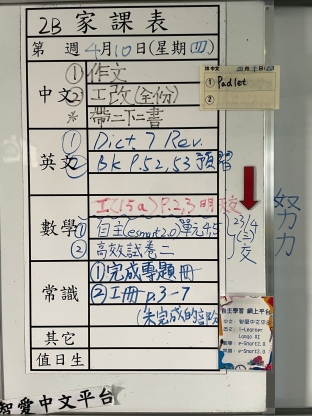 2B 家課表
第 週 4月10日(星期四)
中文
①作文
②工改(全份)
* 帶二下二書
①Padlet
②
英文
①Dict. 7 Rev.
②BK P.52,53 預習
數學
工(15a) P.2,3 明交
①自主(esmart2.0)單元4,5
②高效試卷二
23/4
(三)
交
常識
①完成專題冊
②工冊 p.3-7
(未完成的
其它
值日生
努力
自主學習 網上平台
智愛中文平台